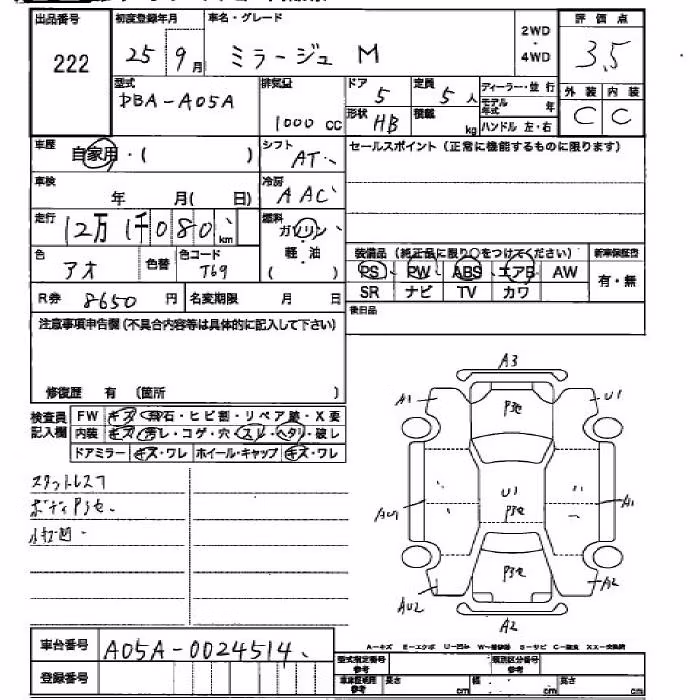 出品番号 222
初度登録年月 25 9月
車名・グレード ミラージュ M
2WD・4WD
評価点 3.5
型式 DBA-A05A
排気量 1000 CC
ドア 5
定員 5人
形状 HB
積載 kg
ディーラー・並行
モデル年式 年
ハンドル 左・右
外装 C
内装 C
車歴 自家用・( )
シフト AT
セールスポイント(正常に機能するものに限ります)
車検 年 月( 日)
冷房 AAC
走行 12万1千080 km
燃料 ガソリン 軽油 ( )
色 アオ
色替
色コード T69
装備品(純正品に限り○をつけてください)
新車保証書
PS PW ABS エアB AW
有・無
SR ナビ TV カワ
R券 8650 円
名変期限 月 日
後日品
注意事項申告欄(不具合内容等は具体的に記入して下さい)
修復歴 有 (箇所 )
検査員記入欄
FW キズ・飛石・ヒビ割・リペア跡・X要
内装 キズ・汚レ・コゲ・穴・スレ・ヘタリ・破レ
ドアミラー キズ・ワレ
ホイール・キャップ キズ・ワレ
スタットレス
ボディPヨセ
小キズ凹
A3
A1
U1
Pヨセ
AU1
U1
Pヨセ
A1
Pヨセ
AU2
A2
A2
A-キズ E-エクボ U-凹み W-補修跡 S-サビ C-腐食 XX-交換済
車台番号 A05A-0024514
登録番号
型式指定番号参考
類別区分番号
車庫証明用参考
長さ cm
幅 cm
高さ cm